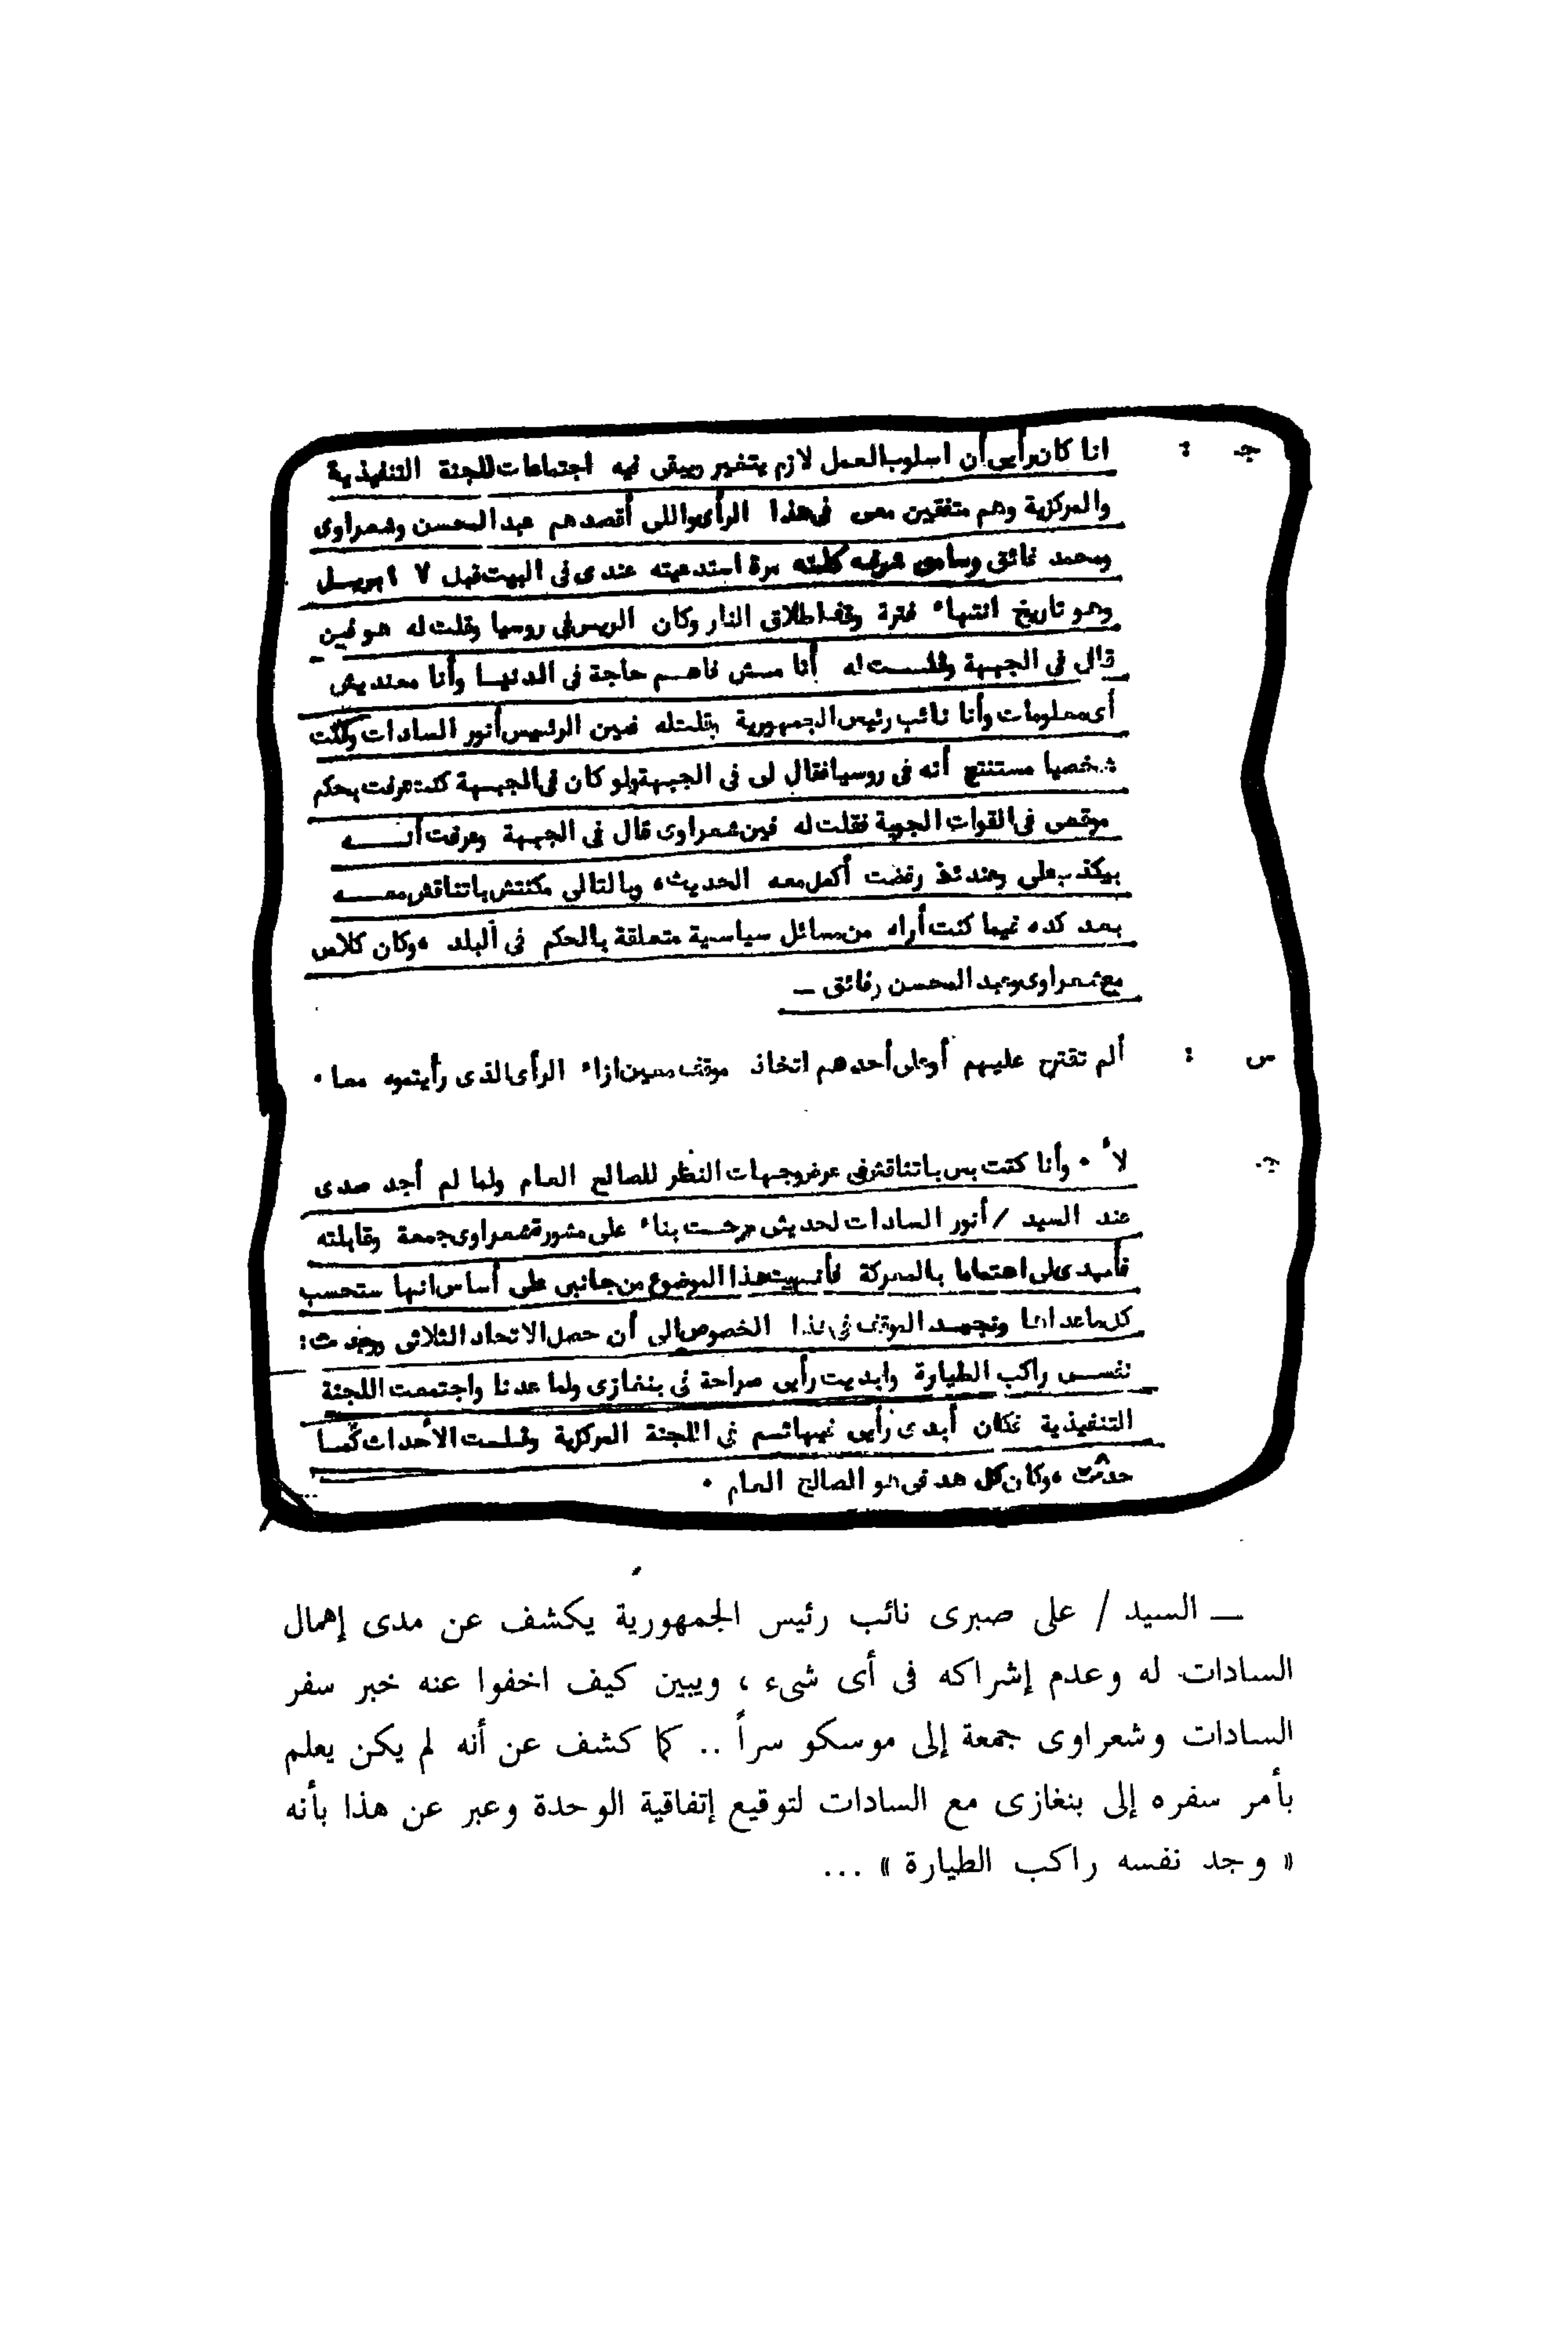 جـ : انا كان رأيى أن اسلوب العمل لازم يتغير ويبقى فيه اجتماعات للجنة التنفيذية
والمركزية وهم متفقين معى فى هذا الرأى واللى أقصدهم عبد المحسن وشعراوى
ومحمد فائق وسامى شرف كلمته مرة استدعيته عندى فى البيت قبل ٧ ابريـل
وهو تاريخ انتهاء فترة وقف اطلاق النار وكان الريس فى روسيا وقلت له هو فين
قال فى الجبهة وقلـــت له أنا مـش فاهـم حاجة فى الدنيـا وأنا معنديش
أى معلومات وأنا نائب رئيس الجمهورية بقلتله فين الرئيس أنور السادات وكنت
شخصيا مستنتج أنه فى روسيا فقال لى فى الجبهة ولو كان فى الجبهة كنت عرفت بحكم
موقعى فى القوات الجوية فقلت له فين شعراوى قال فى الجبهة وعرفت أنـــه
بيكذب على وعندئذ رفضت أكمل معه الحديث، وبالتالى مكنتش باتناقش معـــه
بعد كده فيما كنت أراه من مسائل سياسية متعلقة بالحكم فى البلد ، وكان كلامى
مع شعراوى وعبد المحسن وفائق ـ
س : ألم تقترح عليهم أو على أحدهم اتخاذ موقف معين ازاء الرأى الذى رأيتموه معا .
جـ لأ . وأنا كنت بس باتناقش فى عرض وجهات النظر للصالح العام ولما لم أجد صدى
عند السيد / أنور السادات لحديثى خرجـت بناء على مشورة شعراوى جمعة وقابلته
فأبدى لى اهتماما بالمعركة فأنهيت هذا الموضوع من جانبى على أساس انها ستحسب
كل ماعداها وتجمـد الموقف فى هذا الخصوص الى أن حصل الاتحاد الثلاثى ووجدت :
نفسـى راكب الطيارة وابديت رأيى صراحة فى بنغازى ولما عدنا واجتمعت اللجنة
التنفيذية فكان أبدى رأيى فيها ثـم فى اللجنة المركزية الأحداث كمـا
حدثت ، وكان كل هدفى هو الصالح العام .
ـــ السيد / على صبرى نائب رئيس الجمهورية يكشف عن مدى إهمال
السادات له وعدم إشراكه فى أى شىء ، ويبين كيف اخفوا عنه خبر سفر
السادات وشعراوى جمعة إلى موسكو سراً .. كما كشف عن أنه لم يكن يعلم
بأمر سفره إلى بنغازى مع السادات لتوقيع إتفاقية الوحدة وعبر عن هذا بأنه
« وجد نفسه راكب الطيارة » ...